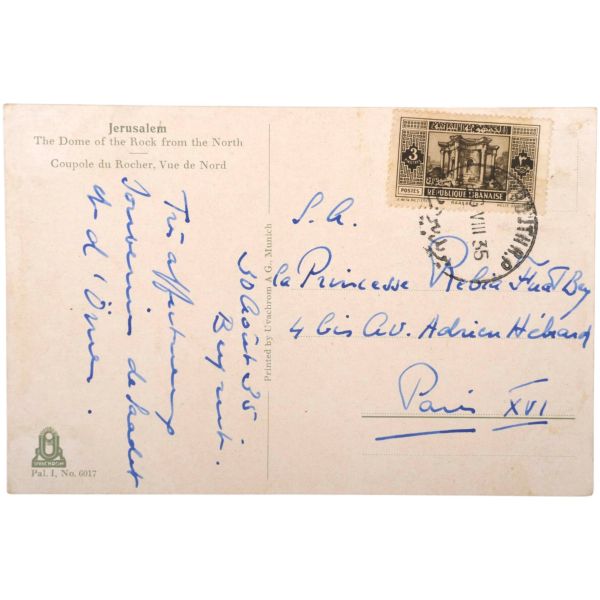 Jerusalem
The Dome of the Rock from the North
Coupole du Rocher, Vue de Nord
30 Août 35
Beyrut.
Très affectueux
Souvenirs de Saadet
et d'Ömer.
UVACHROM
Pal. I, No. 6017
Printed by Uvachrom A G., Munich
3
POSTES
REPUBLIQUE LIBANAISE
VIII 35
S. A.
La Princesse Rebia Fuat Bey
4 bis Av. Adrien Hébrard
Paris XVI